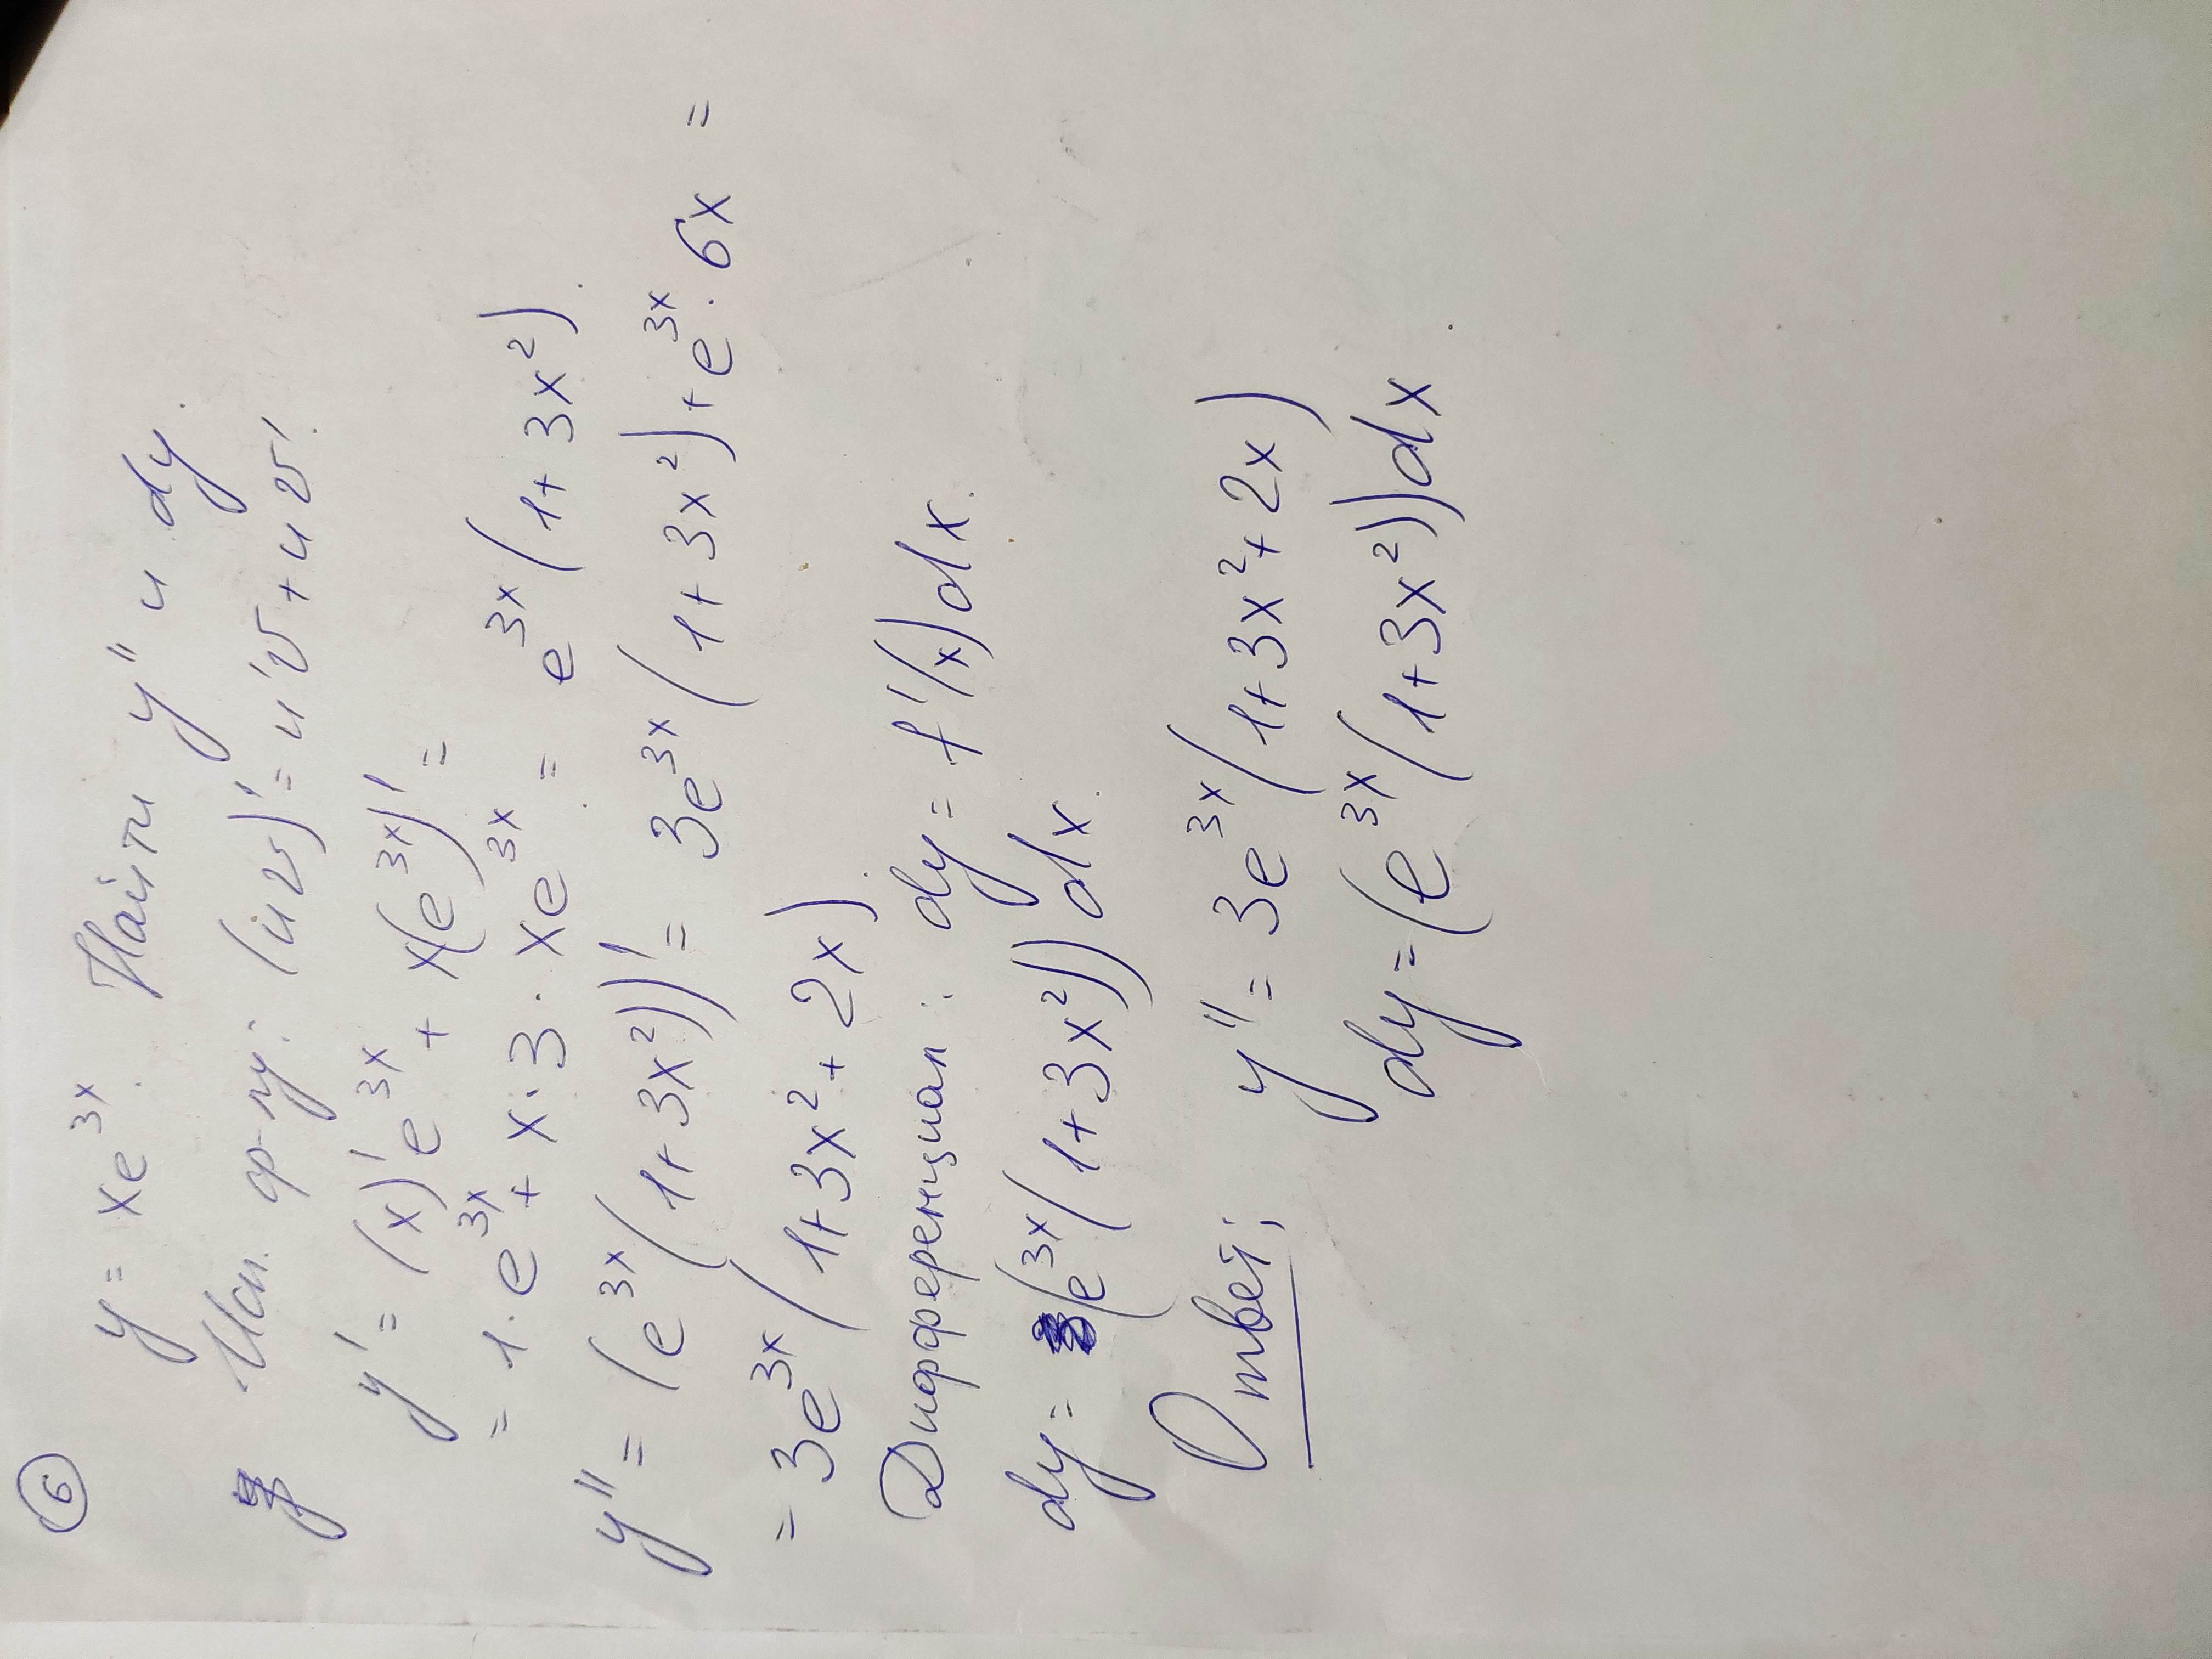 6
y = xe^{3x}. Найти y'' и dy.
Исп. ф-лу: (uv)' = u'v + uv'.
y' = (x)'e^{3x} + x(e^{3x})' =
= 1·e^{3x} + x·3·xe^{3x} = e^{3x}(1+3x^2).
y'' = (e^{3x}(1+3x^2))' = 3e^{3x}(1+3x^2)+e^{3x}·6x =
= 3e^{3x}(1+3x^2+2x).
Дифференциал: dy = f'(x)dx.
dy = (e^{3x}(1+3x^2))dx.
Ответ: y'' = 3e^{3x}(1+3x^2+2x)
dy=(e^{3x}(1+3x^2))dx.